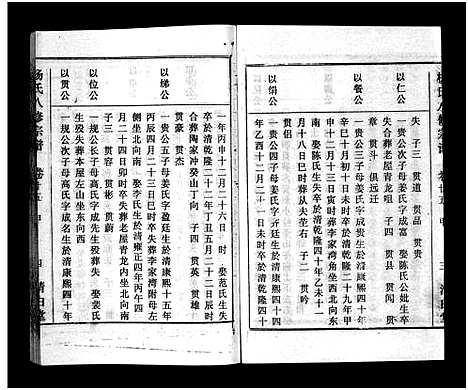 失 子三 贯道 贯品 贯贵
以仁公
一贵公次子母姜氏字成富 娶陈氏公妣生卒
失合葬老屋青龙咀 子四 贯县 贯闻 贯
章 贯斗 俱远迁
以餐公
一贵公三子母姜氏字成贵生于清康熙四十年
辛巳十月初十日未时卒于乾隆二十九年甲
申十二月十三日寅时葬李家湾角坐西北向东
南 娶陈氏生失卒于清乾隆四十年乙未十一
月十八日巳时葬从夫茔右 子二 贯吟
以绢公
一贵公四子母姜氏字齐廷生于清康熙四十四
年乙酉十二月十一日未时卒于清乾隆四十
一年丙申十二月二十六日 时 娶范氏生失
卒于清乾隆二十二年丁丑五月二十二日辰时
合葬陶家冲癸山丁向 子四 贯英 贯雄
贯豪 贯杰
以绨公
一贵公五子母姜氏字盈廷生于清康熙五十一年
丙辰四月二十三日巳时卒失葬李家湾附母左
侧坐北向南 娶李氏生于清雍正四年丙午四
月二十四日卯时卒失葬老屋青龙内坐北向南
子三 贯容 贯彬 贯蔚
以位公
一规公长子母高氏字成先生殁葬失 娶裴氏
生殁失葬本屋左山坐东向西
以贯公
一规公次子母高氏字成名生于清康熙四十年
杨氏八修宗谱 卷廿五 甲 四 清白堂